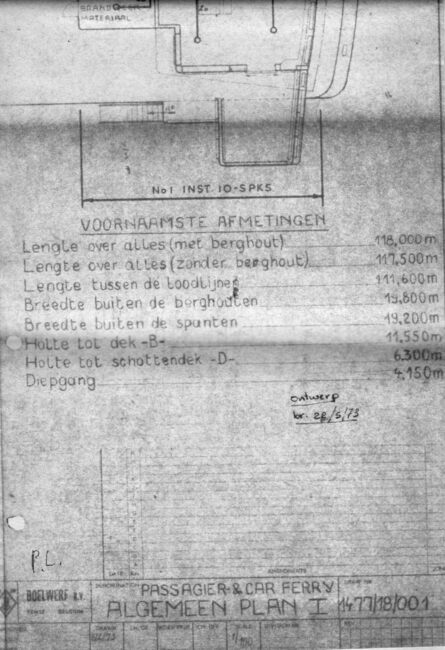 BRAND
MATERIAAL
No 1 INST. 10-SPKS
VOORNAAMSTE AFMETINGEN
Lengte over alles (met berghout) 118,000m
Lengte over alles (zonder berghout) 117,500m
Lengte tussen de loodlijnen 111,600m
Breedte buiten de berghouten 19,800m
Breedte buiten de spanten 19,200m
Holte tot dek -B- 11,550m
Holte tot schottendek -D- 6,300m
Diepgang 4,150m
ontwerp
P.L.
AMENDMENTS
BOELWERF N.V.
TEMSE BELGIUM
PASSAGIER- & CAR FERRY
ALGEMEEN PLAN I
1477/18/001
SCALE
1/100